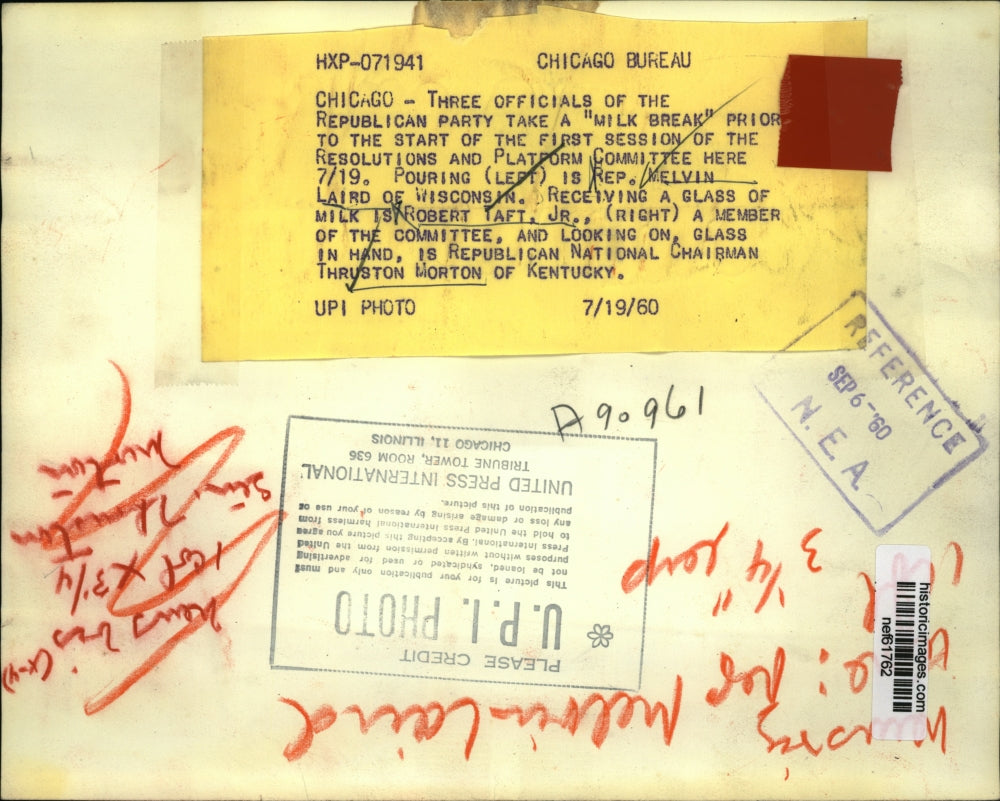 HXP-071941 CHICAGO BUREAU
CHICAGO - THREE OFFICIALS OF THE
REPUBLICAN PARTY TAKE A "MILK BREAK" PRIOR
TO THE START OF THE FIRST SESSION OF THE
RESOLUTIONS AND PLATFORM COMMITTEE HERE
7/19. POURING (LEFT) IS REP. MELVIN
LAIRD OF WISCONSIN. RECEIVING A GLASS OF
MILK IS ROBERT TAFT, JR., (RIGHT) A MEMBER
OF THE COMMITTEE, AND LOOKING ON, GLASS
IN HAND, IS REPUBLICAN NATIONAL CHAIRMAN
THRUSTON MORTON OF KENTUCKY.
UPI PHOTO 7/19/60
REFERENCE
SEP 6-'60
N. E. A.
A90961
PLEASE CREDIT
U.P.I. PHOTO
This picture is for your publication only and must
not be loaned, syndicated or used for advertising
purposes without written permission from the United
Press International. By accepting this picture you agree
to hold the United Press International harmless from
any loss or damage arising by reason of your use or
publication of this picture.
UNITED PRESS INTERNATIONAL
TRIBUNE TOWER, ROOM 636
CHICAGO 11, ILLINOIS
Melvin Laird
Thruston
Morton
x 3 1/4
3 1/4
historicimages.com
nef61762